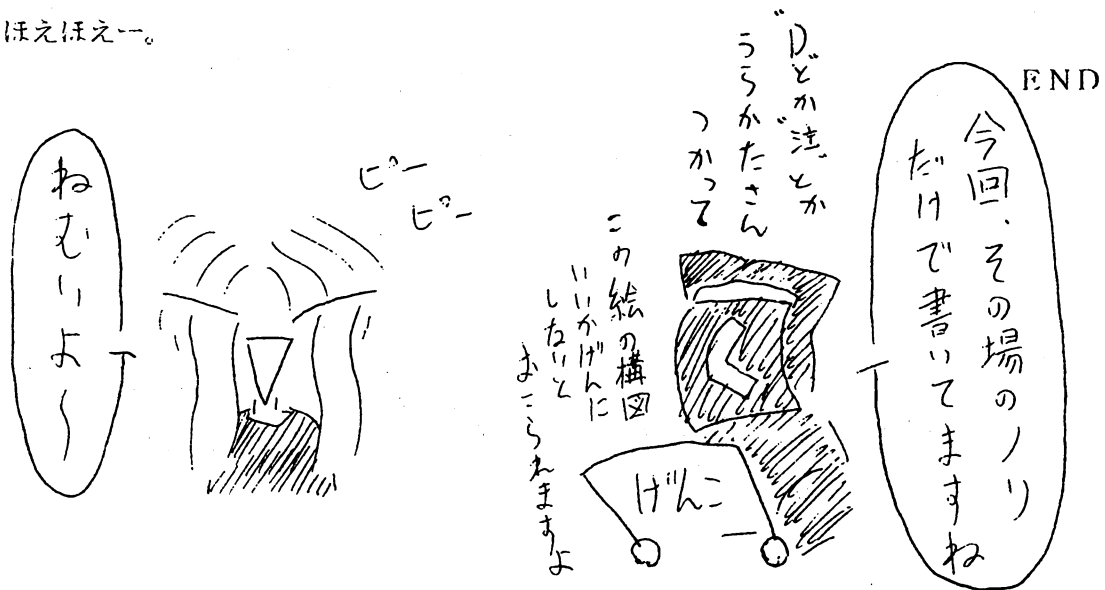 ほえほえー。
END
今回、その場のノリ
だけで書いてますね
"Dとか"泣"とか
うらかたさん
つかって
この絵の構図
いいかげんに
しないと
おこられますよ
げんこ
ピー
ピー
ねむいよ〜